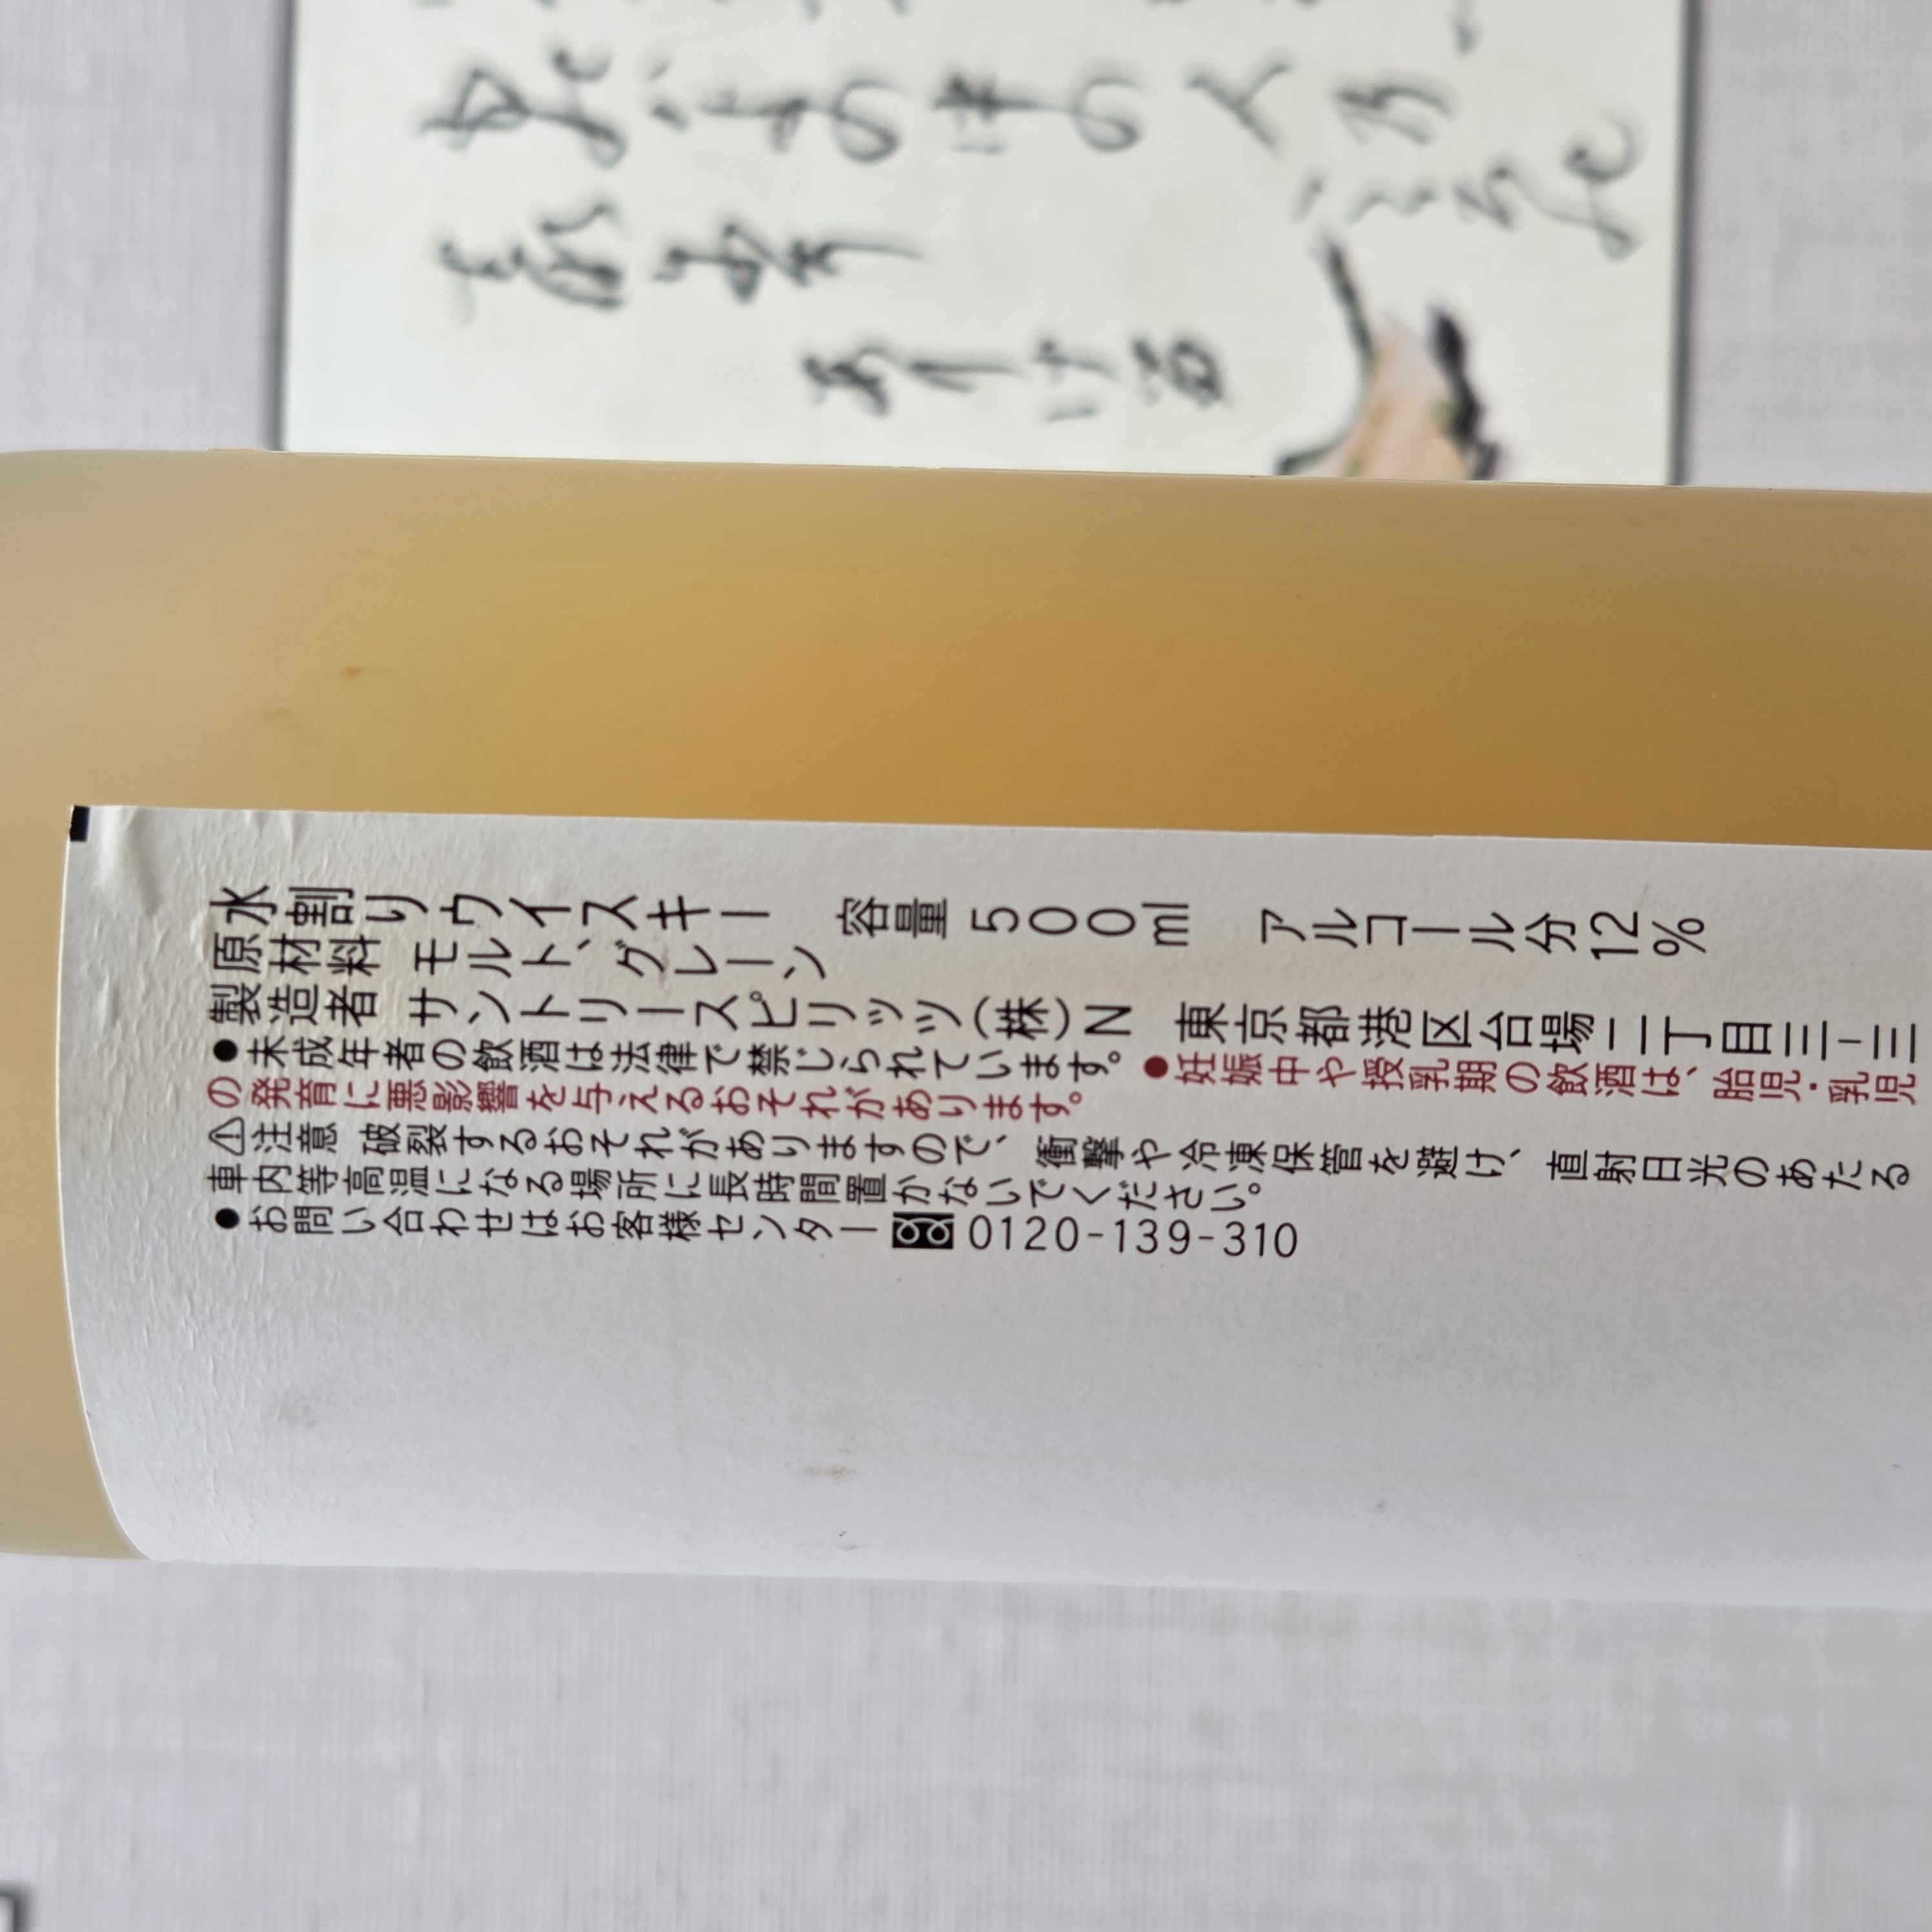 水割りウイスキー 容量500ml アルコール分12%
原材料 モルト、グレーン
製造者 サントリースピリッツ(株)N 東京都港区台場二丁目三-三
●未成年者の飲酒は法律で禁じられています。●妊娠中や授乳期の飲酒は、胎児・乳児
の発育に悪影響を与えるおそれがあります。
⚠注意 破裂するおそれがありますので、衝撃や冷凍保管を避け、直射日光のあたる
車内等高温になる場所に長時間置かないでください。
●お問い合わせはお客様センター 0120-139-310